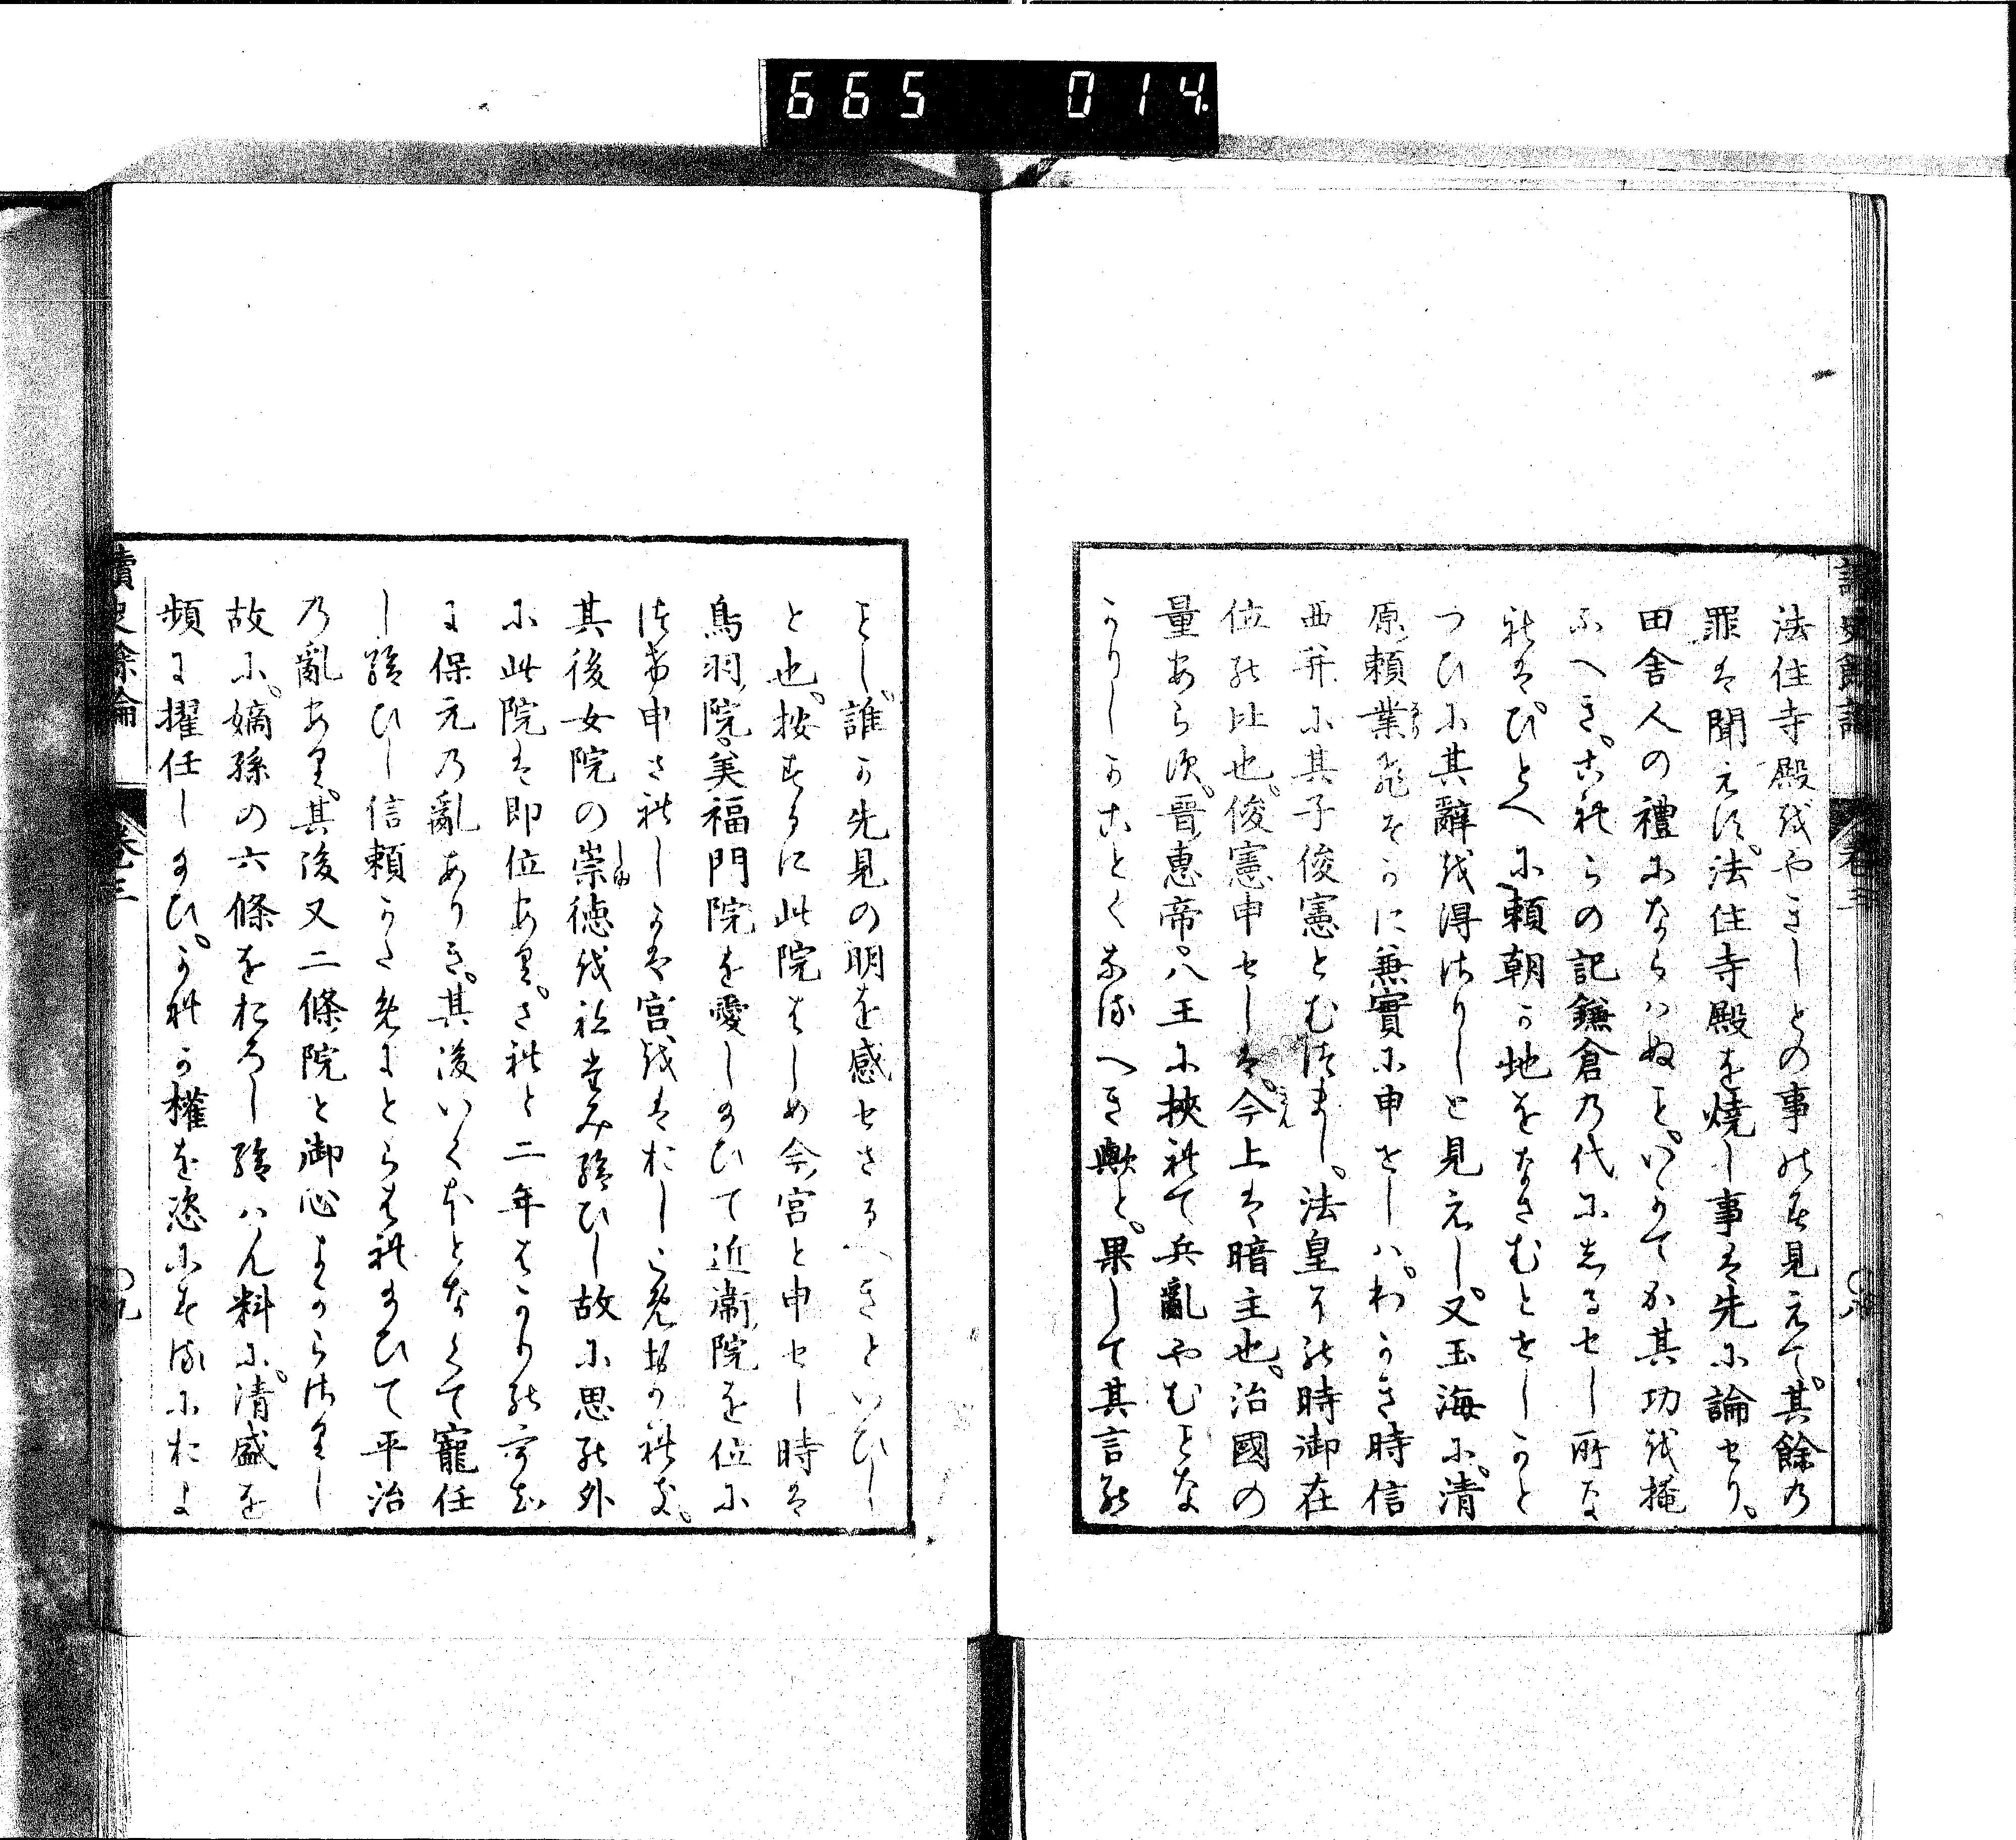 665 014.
讀史餘論 卷三 〇八
法住寺殿或やきしとの事のミ見えて。其餘の
罪は聞えす。法住寺殿を燒し事は先に論せり。
田舍人の禮にならハぬを。いかてか其功を掩
ふへき。これらの記鎌倉乃代にしるせし所な
れはひとへに賴朝か地をなさむとせしかと
つひに其辭を得さりしと見えし。又玉海に。清
原賴業ひそかに兼實に申せしハ。わかき時信
西并に其子俊憲とむつまし。法皇下の時御在
位の比也。俊憲申せしは。今上は暗主也。治國の
量あらす。晉惠帝。八王に挾れて兵亂やむとな
かりしかことくなるへき歟と。果して其言の
とし。誰か先見の明を感せさるへきといひし
と也。按するに此院はしめ今宮と申せし時は
鳥羽院。美福門院を愛し給ひて近衞院を位に
つけ申されしかは宮をはおしこめおかれき。
其後女院の崇德を惡み給ひし故に思の外
に此院は即位あり。されと二年はかりの間
に保元乃亂ありき。其後いくほとなくて寵任
し給ひし信賴かためにとらはれ給ひて平治
乃亂あり。其後又二條院と御心よからさりし
故に。嫡孫の六條をおろし給ハん料に。清盛を
頻に擢任し給ひ。かれか權を恣にするによ
讀史餘論 卷三 〇九